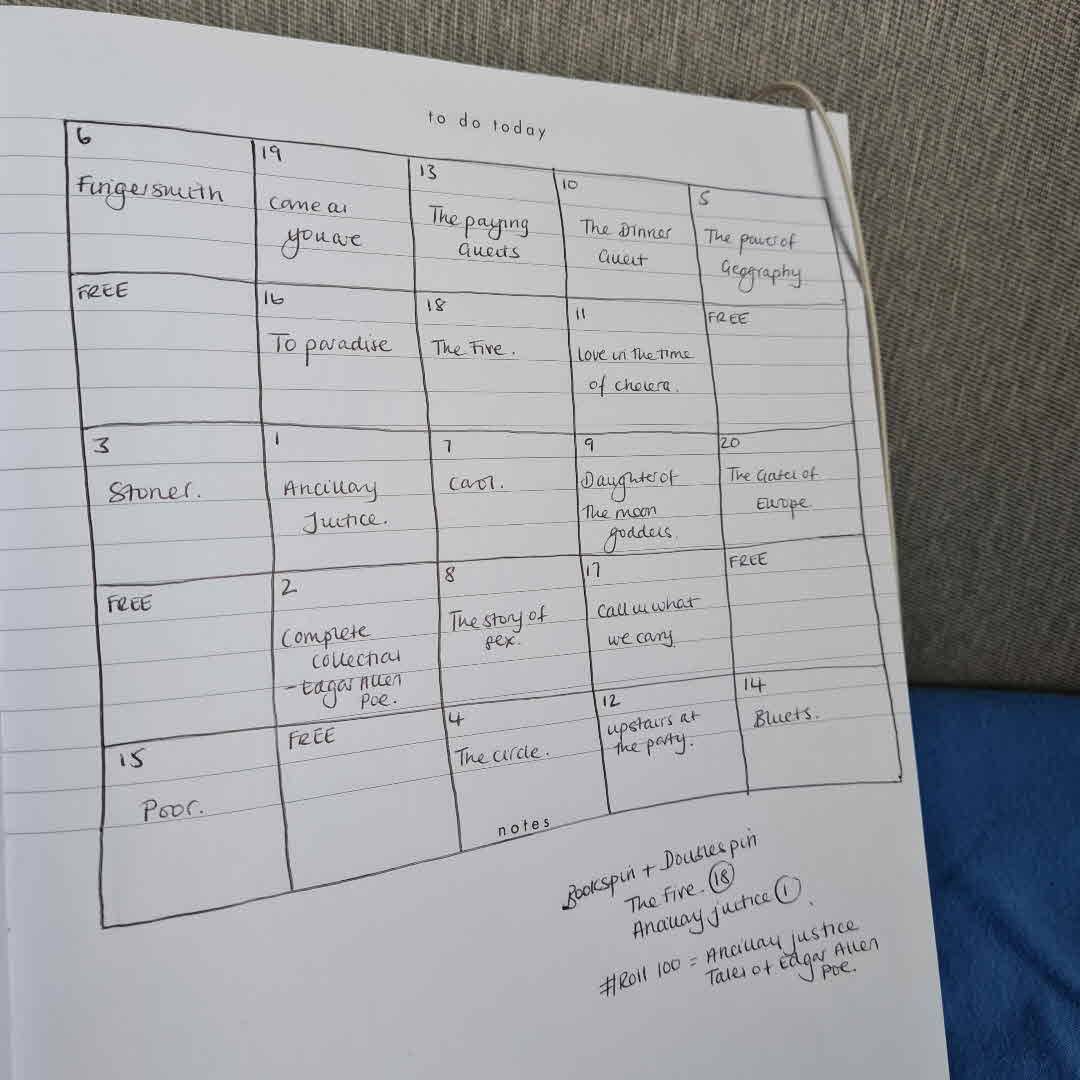 to do today
6
Fingersmith
19
Come as
you are
13
The paying
Guests
10
The Dinner
Guest
5
The power of
Geography
FREE
16
To paradise
18
The Five.
11
Love in the time
of cholera.
FREE
3
Stoner.
1
Ancillary
Justice.
7
Carol.
9
Daughter of
the moon
goddess.
20
The Gates of
Europe.
FREE
2
Complete
collection
- Edgar Allen
Poe.
8
The story of
sex.
17
Call us what
we carry
FREE
15
Poor.
FREE
4
The circle.
12
upstairs at
the party.
14
Bluets.
notes
Bookspin + Doublespin
The Five. 18
Ancillary justice 1.
#Roll 100 = Ancillary justice
Tales of Edgar Allen
Poe.